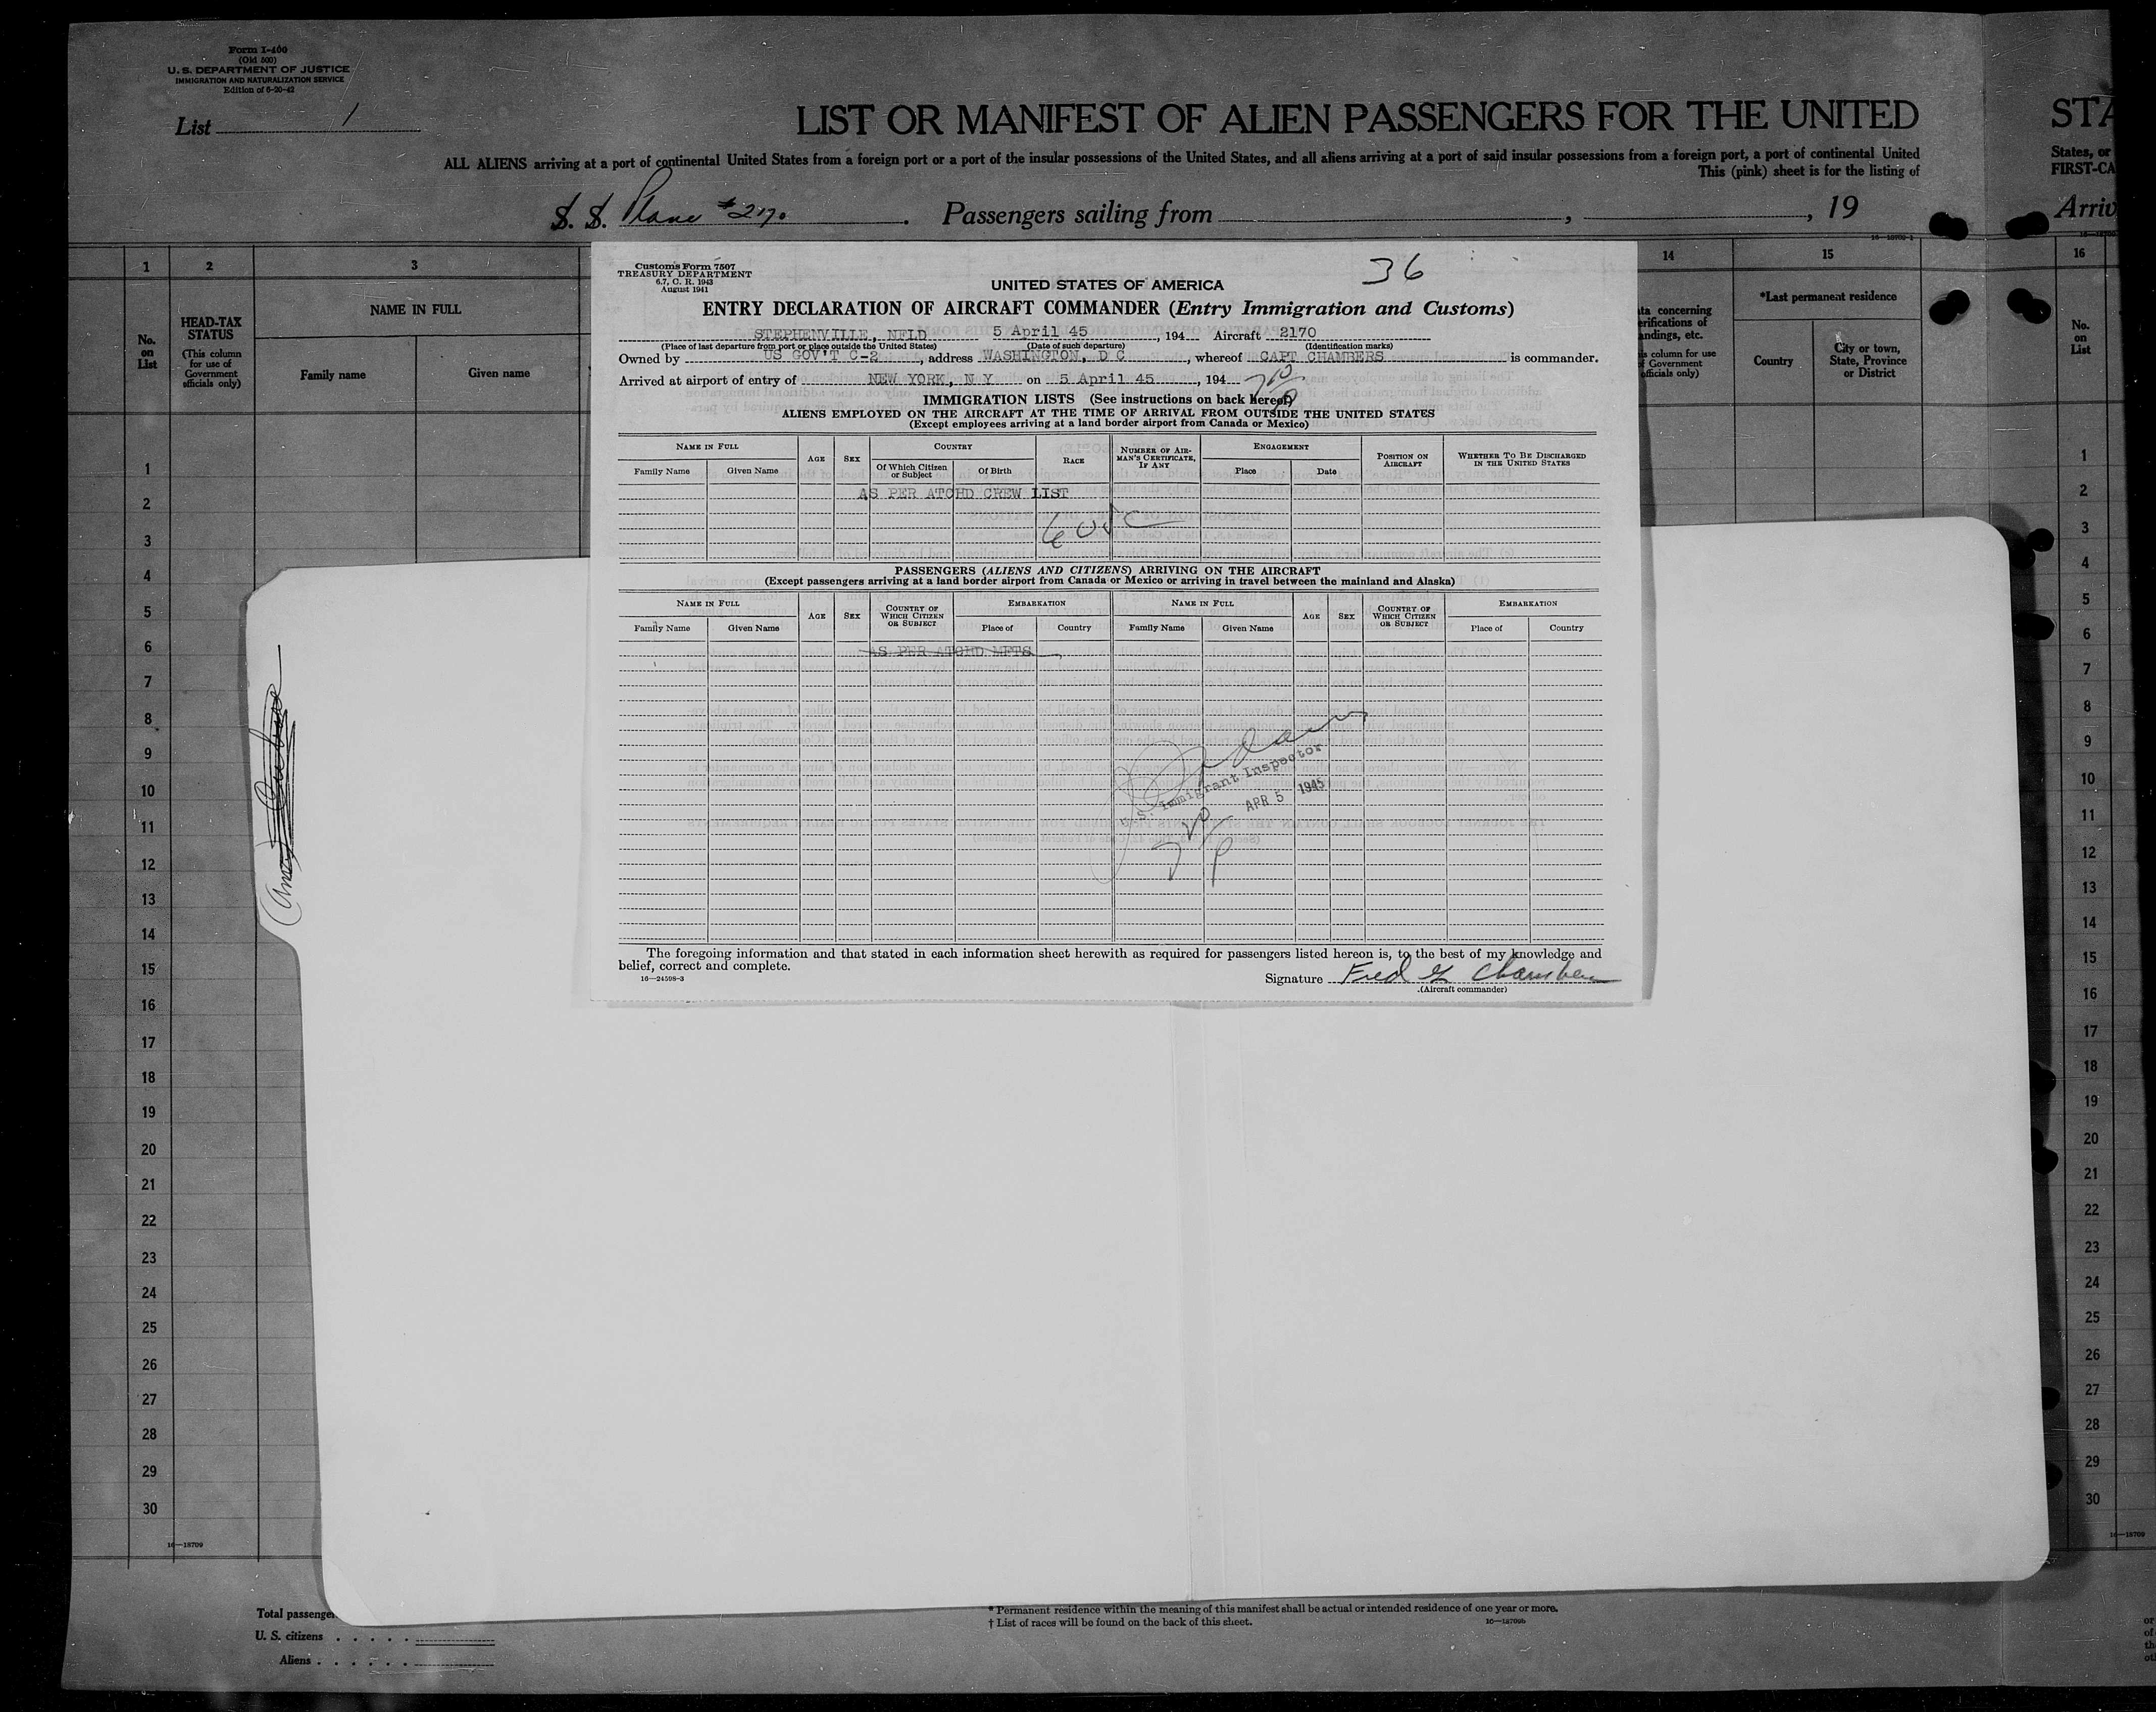 Form I-400
(Old 500)
U. S. DEPARTMENT OF JUSTICE
IMMIGRATION AND NATURALIZATION SERVICE
Edition of 6-20-42
List 1
LIST OR MANIFEST OF ALIEN PASSENGERS FOR THE UNITED
ALL ALIENS arriving at a port of continental United States from a foreign port or a port of the insular possessions of the United States, and all aliens arriving at a port of said insular possessions from a foreign port, a port of continental United
This (pink) sheet is for the listing of
S. S. Plane #2170. Passengers sailing from , , 19
STA
States, or
FIRST-CA
Arriv
1 2 3 14 15 16
No. on List
HEAD-TAX STATUS
(This column for use of Government officials only)
NAME IN FULL
Family name Given name
ta concerning
erifications of
andings, etc.
is column for use
f Government
officials only)
*Last permanent residence
Country
City or town, State, Province or District
No. on List
Customs Form 7507
TREASURY DEPARTMENT
6.7, C. R. 1943
August 1941
36
UNITED STATES OF AMERICA
ENTRY DECLARATION OF AIRCRAFT COMMANDER (Entry Immigration and Customs)
STEPHENVILLE, NFLD 5 April 45, 194 Aircraft 2170
(Place of last departure from port or place outside the United States) (Date of such departure) (Identification marks)
Owned by US GOV'T C-2, address WASHINGTON, D C, whereof CAPT CHAMBERS is commander.
Arrived at airport of entry of NEW YORK, N Y on 5 April 45, 194
IMMIGRATION LISTS (See instructions on back hereof)
ALIENS EMPLOYED ON THE AIRCRAFT AT THE TIME OF ARRIVAL FROM OUTSIDE THE UNITED STATES
(Except employees arriving at a land border airport from Canada or Mexico)
NAME IN FULL
Family Name Given Name
AGE SEX
COUNTRY
Of Which Citizen or Subject Of Birth
RACE
NUMBER OF AIRMAN'S CERTIFICATE, IF ANY
ENGAGEMENT
Place Date
POSITION ON AIRCRAFT
WHETHER TO BE DISCHARGED IN THE UNITED STATES
AS PER ATCHD CREW LIST
6 USC
PASSENGERS (ALIENS AND CITIZENS) ARRIVING ON THE AIRCRAFT
(Except passengers arriving at a land border airport from Canada or Mexico or arriving in travel between the mainland and Alaska)
NAME IN FULL AGE SEX COUNTRY OF WHICH CITIZEN OR SUBJECT EMBARKATION NAME IN FULL AGE SEX COUNTRY OF WHICH CITIZEN OR SUBJECT EMBARKATION
Family Name Given Name Place of Country Family Name Given Name Place of Country
AS PER ATCHD MFTS
U.S. Immigrant Inspector
APR 5 1945
The foregoing information and that stated in each information sheet herewith as required for passengers listed hereon is, to the best of my knowledge and
belief, correct and complete.
16—24598-3
Signature Fred G Chambers
(Aircraft commander)
1 1
2 2
3 3
4 4
5 5
6 6
7 7
8 8
9 9
10 10
11 11
12 12
13 13
14 14
15 15
16 16
17 17
18 18
19 19
20 20
21 21
22 22
23 23
24 24
25 25
26 26
27 27
28 28
29 29
30 30
16—18709
16—18709
Total passenge
U. S. citizens
Aliens
* Permanent residence within the meaning of this manifest shall be actual or intended residence of one year or more.
† List of races will be found on the back of this sheet.
16—18709b